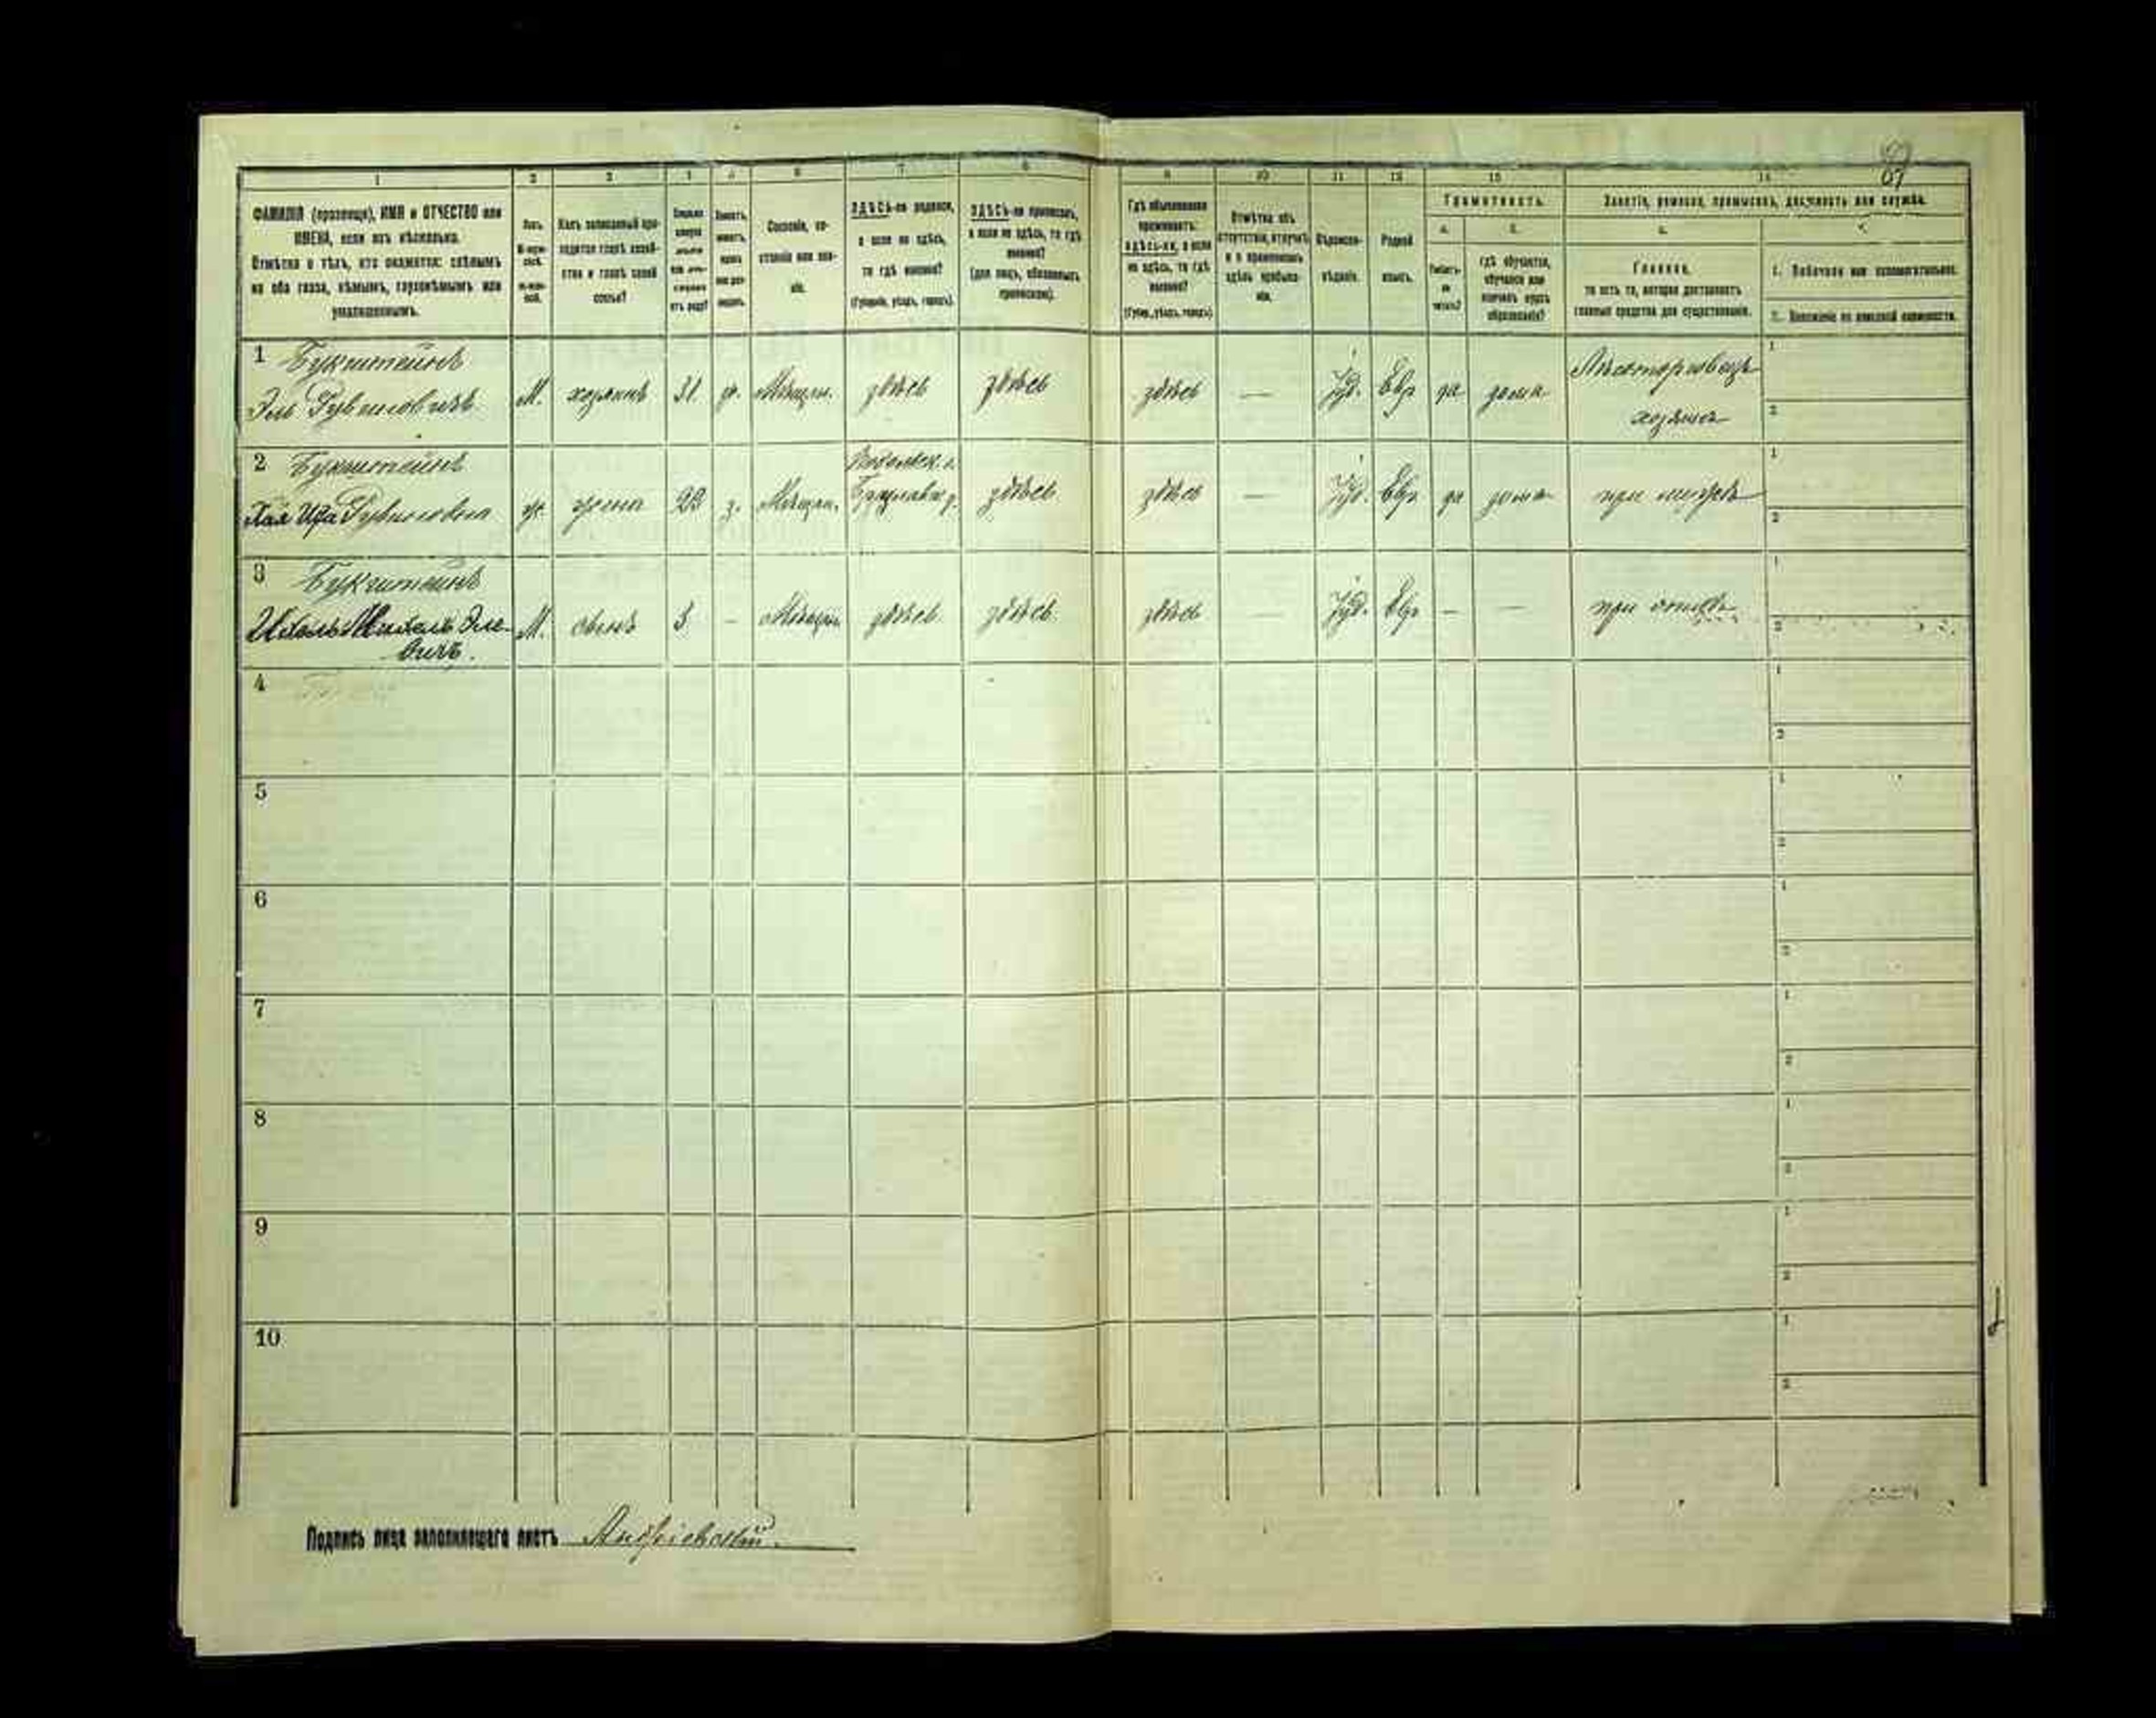 87
1 2 3 4 5 6 7 8 9 10 11 12 13 14
ФАМИЛІЯ (прозвище), ИМЯ и ОТЧЕСТВО или
ИМЕНА, если ихъ нѣсколько.
Отмѣтка о тѣхъ, кто окажется: слѣпымъ
на оба глаза, нѣмымъ, глухонѣмымъ или
умалишеннымъ.
Полъ.
Какъ записанный при-
ходится главѣ хозяй-
ства и главѣ своей
семьи?
Сословіе, со-
стояніе или зва-
ніе.
ЗДѢСЬ-ли родился,
а если не здѣсь,
то гдѣ именно?
(Губернія, уѣздъ, городъ).
ЗДѢСЬ-ли приписанъ,
а если не здѣсь, то гдѣ
именно?
(для лицъ, обязанныхъ
припискою).
Гдѣ обыкновенно
проживаетъ:
здѣсь-ли, а если
не здѣсь, то гдѣ
именно?
(Губер., уѣздъ, городъ).
Отмѣтка объ
отсутствіи, отлучкѣ
и о временномъ
здѣсь пребыва-
ніи.
Вѣроиспо-
вѣданіе.
Родной
языкъ.
Грамотность.
а. б.
Умѣетъ-
ли
читать?
гдѣ обучается,
обучался или
кончилъ курсъ
образованія?
Занятіе, ремесло, промыселъ, должность или служба.
Главное,
то есть то, которое доставляетъ
главныя средства для существованія.
1. Побочное или вспомогательное.
2. Положеніе по воинской повинности.
1 Букштейнъ
Эль Рувиновичъ М. хозяинъ 31 ж. Мѣщан. здѣсь здѣсь здѣсь — Іуд. Евр. да дома Лѣсоторговецъ
хозяинъ
2 Букштейнъ Подольск. г.
Хая Ида Рувиновна ж. жена 23 з. Мѣщан. Брацлавск. у. здѣсь здѣсь — Іуд. Евр. да дома при мужѣ
3 Букштейнъ
Михель Эле- М. сынъ 3 - Мѣщан. здѣсь здѣсь здѣсь — Іуд. Евр. — — при отцѣ
вичъ.
4
5
6
7
8
9
10
Подпись лица заполнявшего листъ Андріевскій.